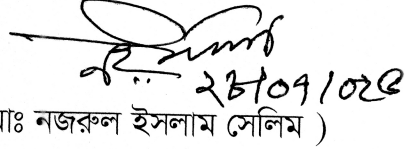 ২৮/০৭/০২৫
াঃ নজরুল ইসলাম সেলিম )